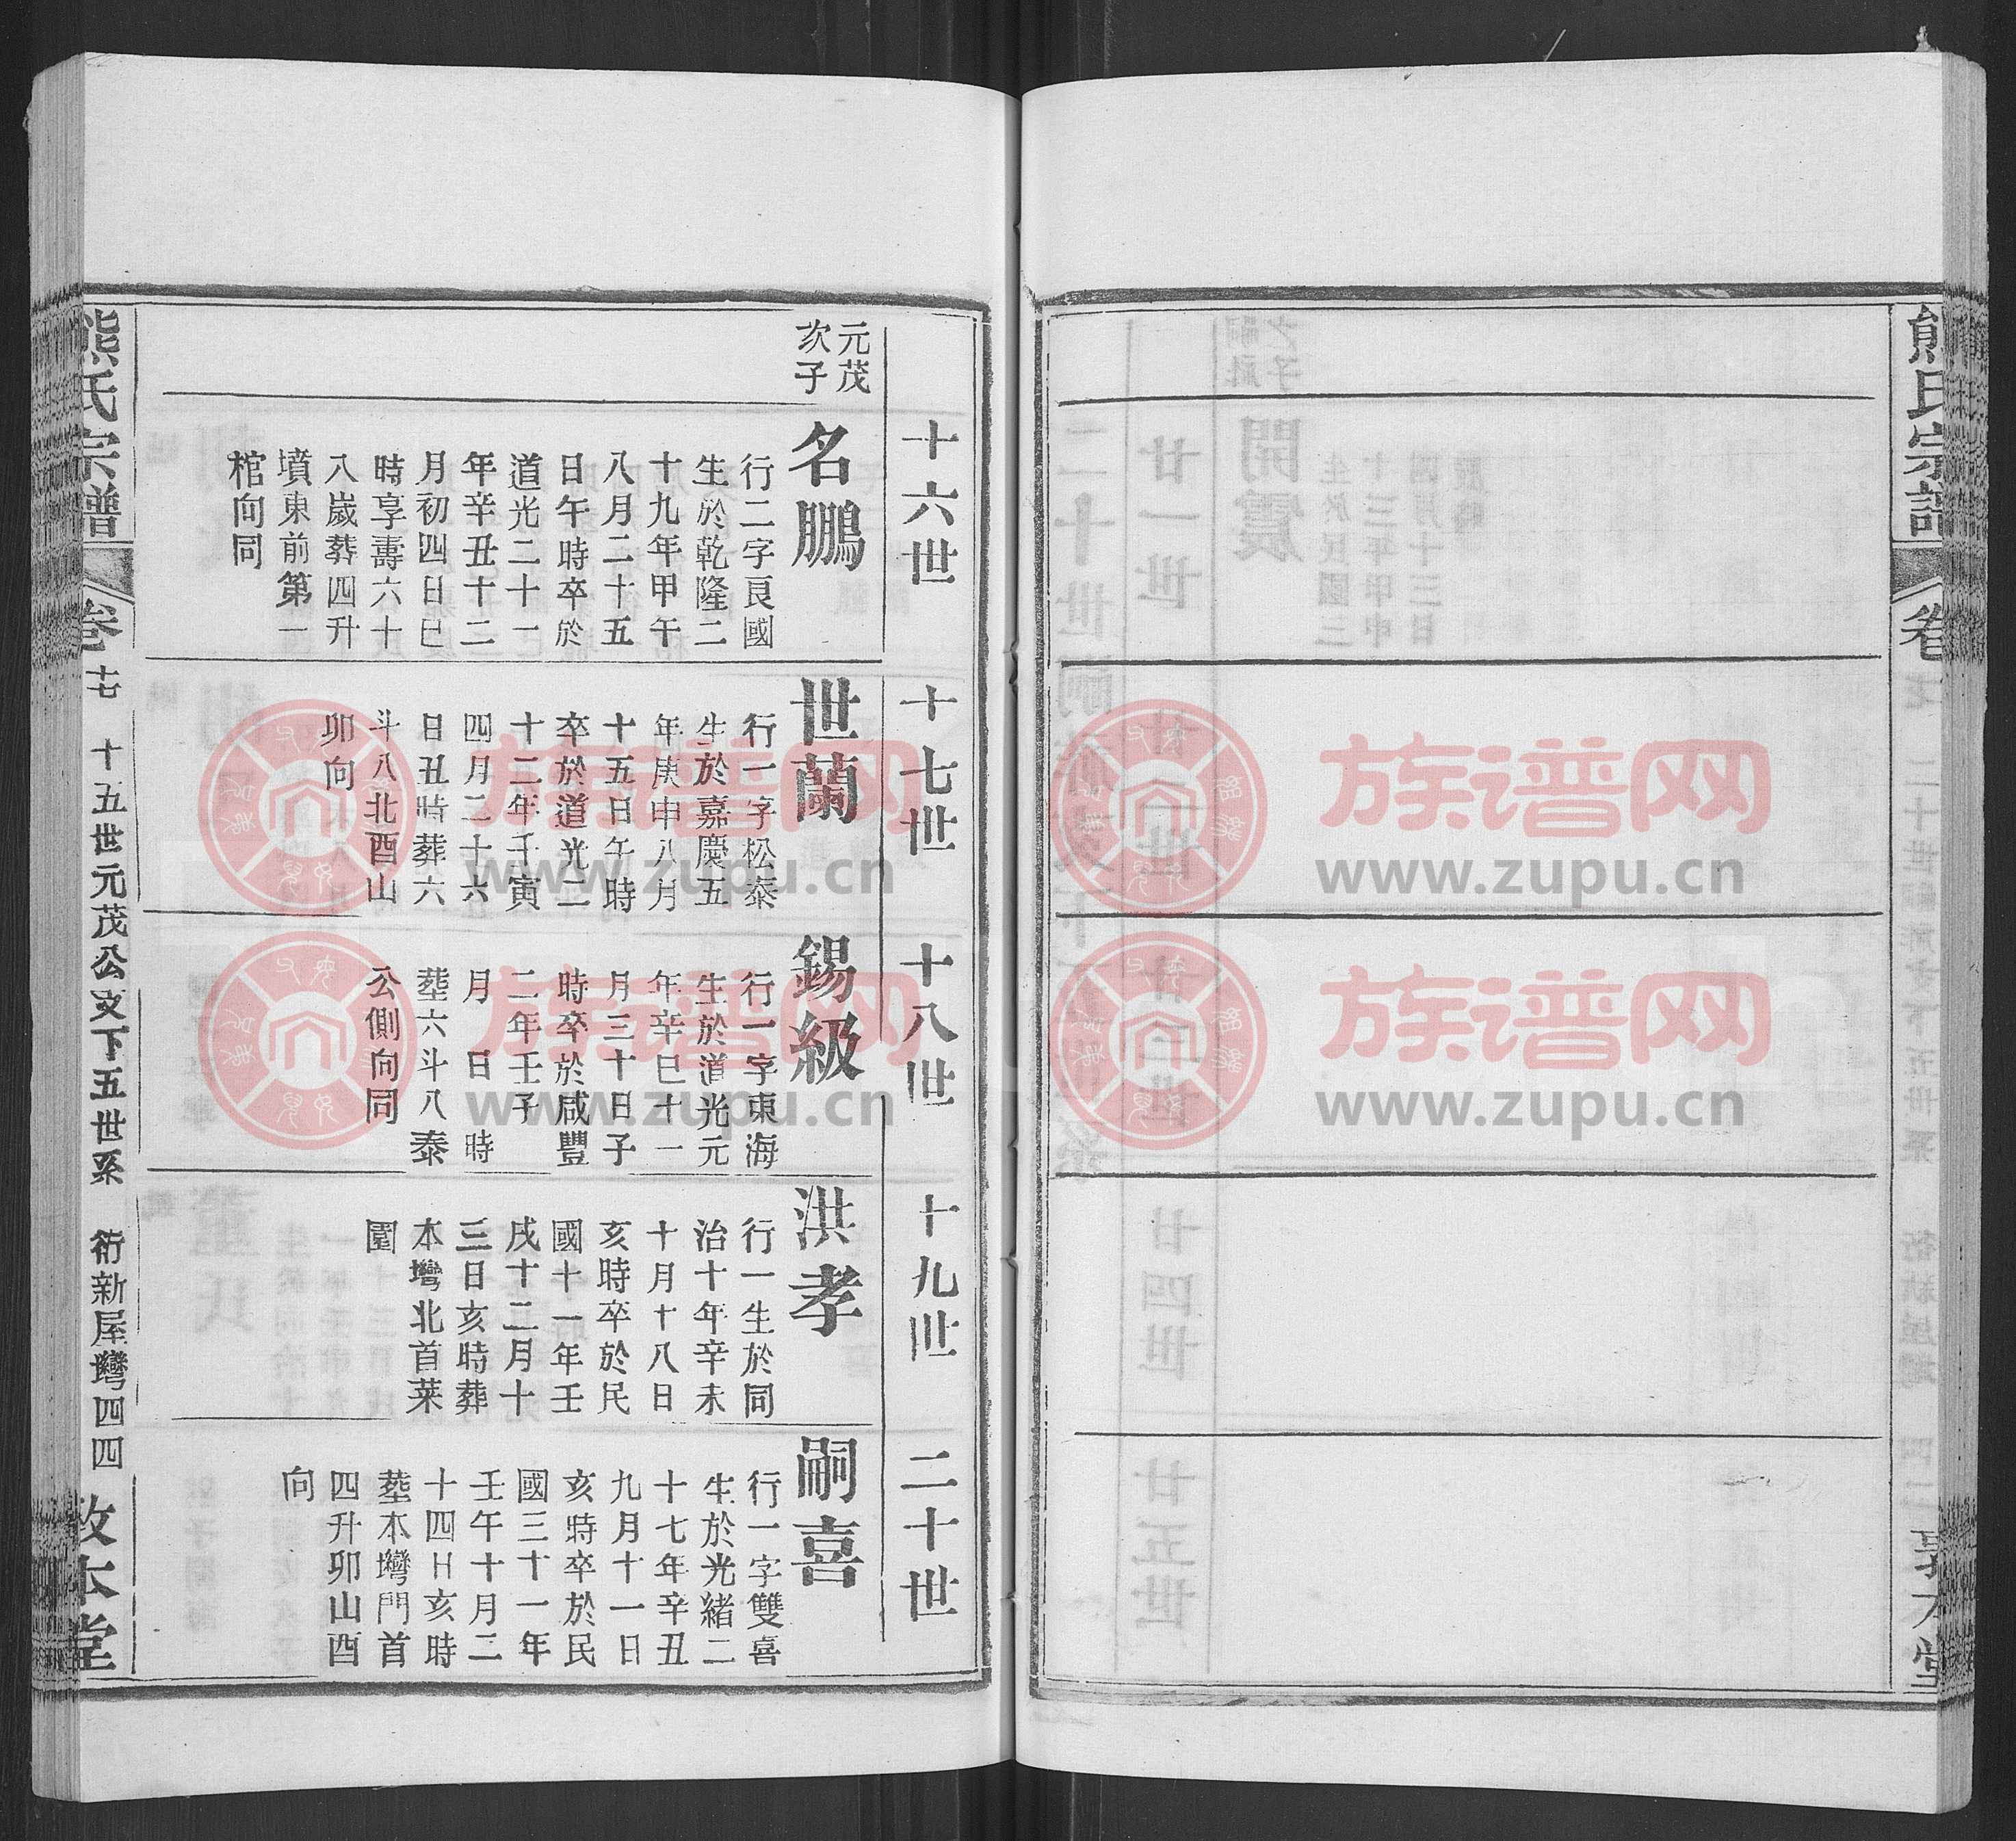 熊氏宗譜
卷
十六世
十七世
十八世
十九世
二十世
元茂
次子
名鵬
行二字良國
生於乾隆二
十九年甲午
八月二十五
日午時卒於
道光二十一
年辛丑十二
月初四日巳
時享壽六十
八歲葬四升
墳東前第一
棺向同
世蘭
行一字松泰
生於嘉慶五
年庚申八月
十五日午時
卒於道光二
十二年壬寅
四月二十六
日丑時葬六
斗八北酉山
卯向
錫級
行一字東海
生於道光元
年辛巳十一
月三十日子
時卒於咸豐
二年壬子
月 日 時
塟六斗八泰
公側向同
洪孝
行一生於同
治十年辛未
十月十八日
亥時卒於民
國十一年壬
戌十二月十
三日亥時葬
本灣北首菜
園
嗣喜
行一字雙喜
生於光緒二
十七年辛丑
九月十一日
亥時卒於民
國三十一年
壬午十月二
十四日亥時
塟本灣門首
四升卯山酉
向
熊氏宗譜
卷十七
十五世元茂公支下五世系
衖新屋灣四四
敦本堂
族谱网
www.zupu.cn
族谱网
www.zupu.cn
族谱网
www.zupu.cn
族谱网
www.zupu.cn